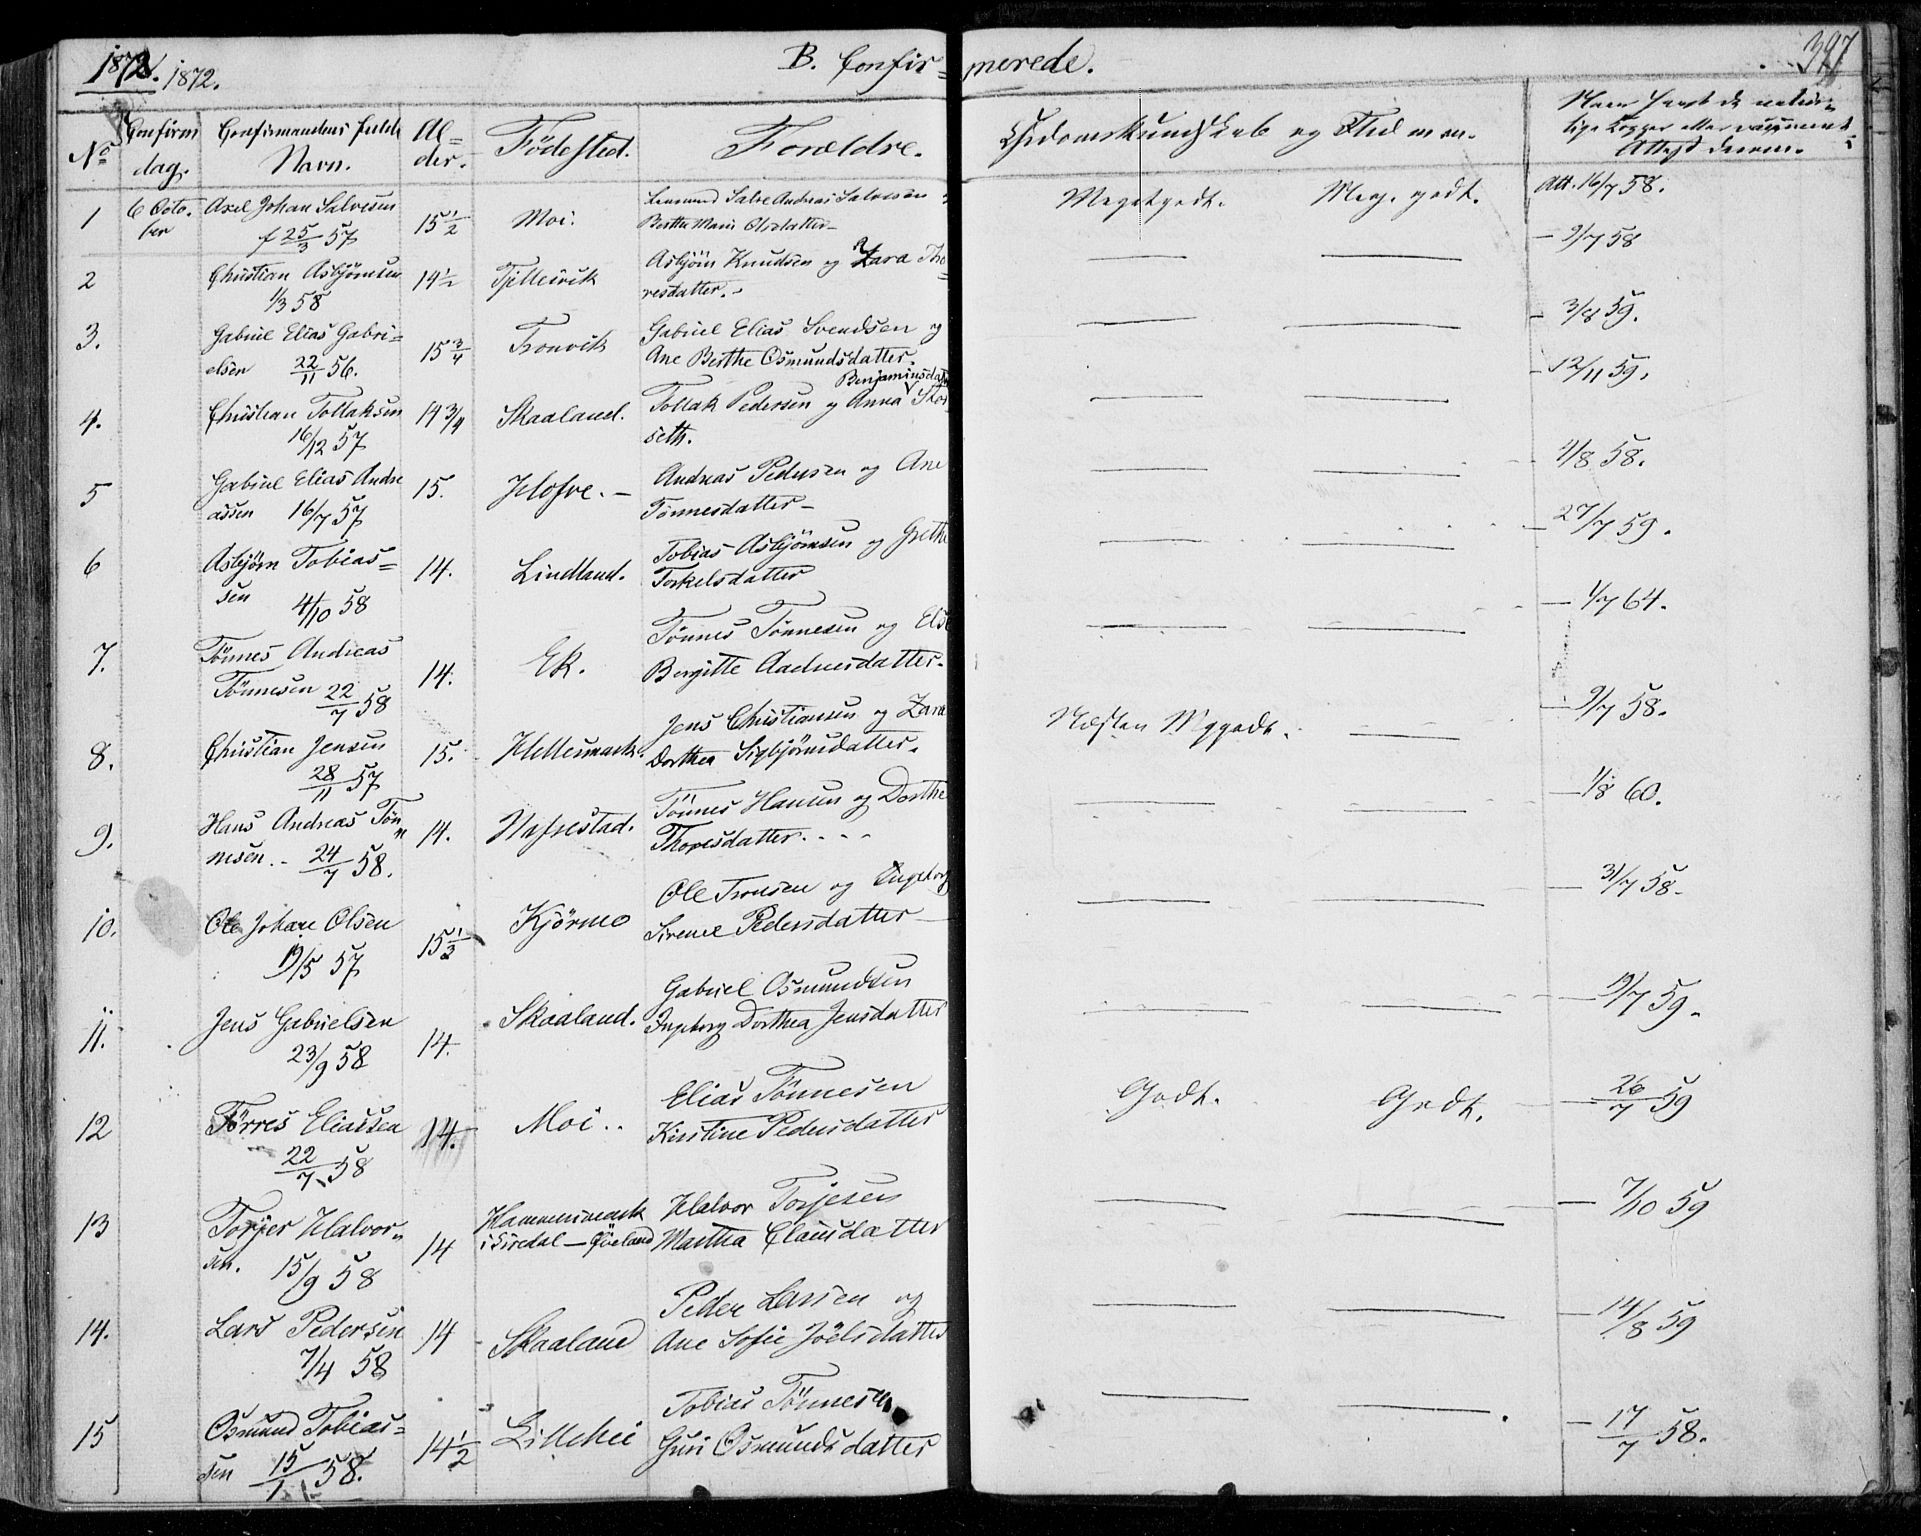 1872. 1872.
B. Confir= merede.
397
No
Confirm dag.
Confirmandens fulde Navn.
Al= der.
Fødested.
Forældre.
Christdomskundskab og
Naar havt de natur- lige Kopper eller
Attest derom.
1 6 Octo- ber Axel Johan Salvesen f 25/3 57 15 1/2 Moi. Salve Andreas Salvesen og Berthe Marie Meget godt. Meg. godt. Att. 16/7 58.
2 Christian Asbjörnsen 1/3 58 14 1/2 Asbjörn Knudsen og Zara Tho= resdatter. — — — 9/7 58
3. Gabriel Elias Gabri- elsen 22/11 56. 15 3/4 Tronvik Gabriel Elias Svendsen og Ane Berthe Osmundsdatter. — — — 3/8 59.
4. Christian Tollaksen 16/12 57 14 3/4 Skaaland. Tollak Pedersen og Anna Benjaminsdatter seth. — — — 12/11 59.
5 Gabriel Elias Andre assen 16/7 57 15. Hofve. — Andreas Pedersen og Ane Tönnesdatter — — — — 4/8 58.
6 Asbjörn Tobias= sen 4/10 58 14. Lindland. Tobias Asbjörnsen og Grethe Torkelsdatter — — — 27/7 59.
7. Tönnes Andreas Tönnesen 22/7 58 14. Ek. Tönnes Tönnesen og Else Bergitte Aadnesdatter. — — — 1/7 64.
8. Christian Jensen 28/11 57 15. Hellesmark. Jens Christiansen og Zara Dorthea Sigbjörnsdatter. Næsten Mg godt. — — 9/7 58.
9. Hans Andreas Tön nesen. - 24/7 58. 14. Nafrestad. Tönnes Hansen og Dorthe Thoresdatter. — — — 1/8 60.
10. Ole Johan Olsen 19/5 57 15 1/3 Kjörmo Ole Tronsen og Ingeborg Sirene Pedersdatter — — — — 31/7 58.
11. Jens Gabrielsen 23/9 58 14. Skaaland. Gabriel Osmundsen Ingeborg Dorthea Jensdatter — — — 19/7 59.
12 Törres Eliassen 22/7 58 14. Moi.. Elias Tönnesen Kirstine Pedersdatter Godt. Godt. — 26/7 59
13 Torjer Halvor- sen. 15/9 58 14 Hammersmark i Siredal — Halvor Torjesen Martha Clausdatter — — — 7/10 59
14. Lars Pedersen 7/4 58 14 - Skaaland Peder Larsen og Ane Sofie Joëlsdatter — — — 14/8 59
15 Osmund Tobias= sen 15/1 58. 14 1/2 Lillehei Tobias Tönnesen Guri Osmundsdatter — — — 17/7 58.